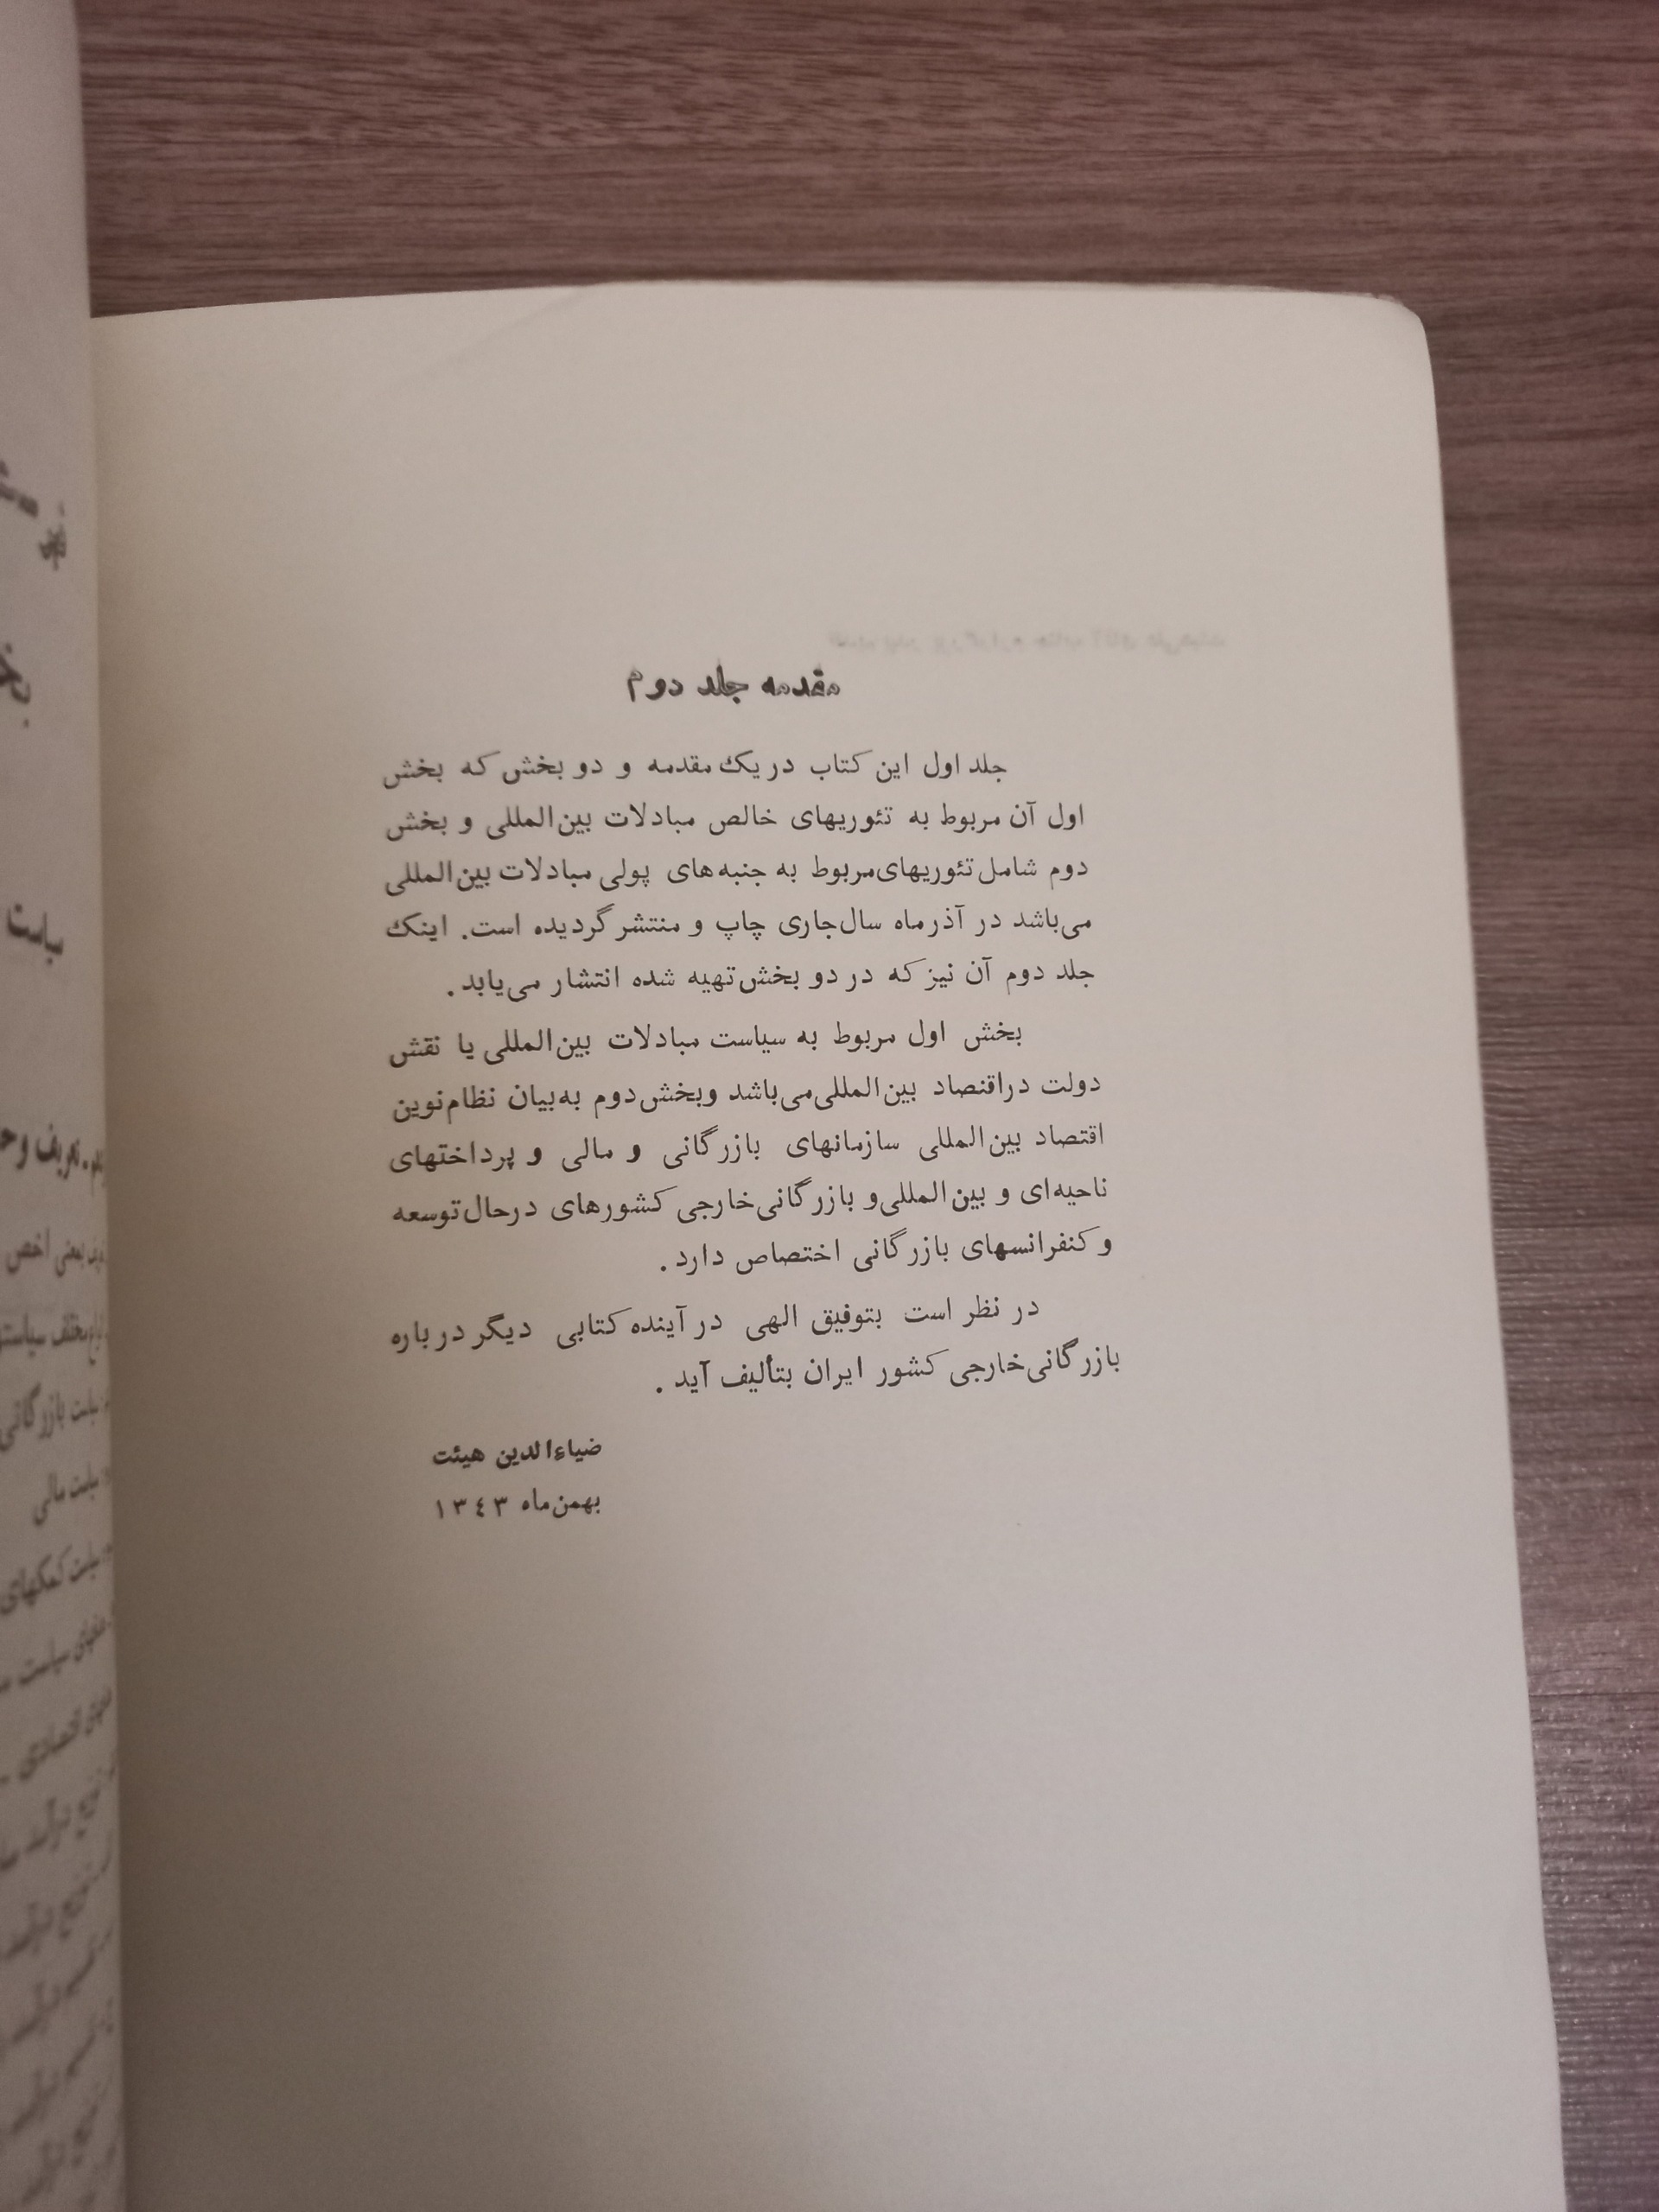 مقدمه جلد دوم
جلد اول این کتاب در یک مقدمه و دو بخش که بخش
اول آن مربوط به تئوریهای خالص مبادلات بین‌المللی و بخش
دوم شامل تئوریهای مربوط به جنبه‌های پولی مبادلات بین‌المللی
می‌باشد در آذر ماه سال جاری چاپ و منتشر گردیده است. اینک
جلد دوم آن نیز که در دو بخش تهیه شده انتشار می‌یابد .
بخش اول مربوط به سیاست مبادلات بین‌المللی یا نقش
دولت در اقتصاد بین‌المللی می‌باشد و بخش دوم به بیان نظام نوین
اقتصاد بین‌المللی سازمانهای بازرگانی و مالی و پرداختهای
ناحیه‌ای و بین‌المللی و بازرگانی خارجی کشورهای در حال توسعه
و کنفرانسهای بازرگانی اختصاص دارد .
در نظر است بتوفیق الهی در آینده کتابی دیگر در باره
بازرگانی خارجی کشور ایران بتألیف آید .
ضیاءالدین هیئت
بهمن ماه ۱۳٤۳
سیاست
تعریف و
بمعنی اخص
مختلف
سیاست بازرگانی
سیاست مالی
سیاست کمکهای
سیاست
اقتصادی -